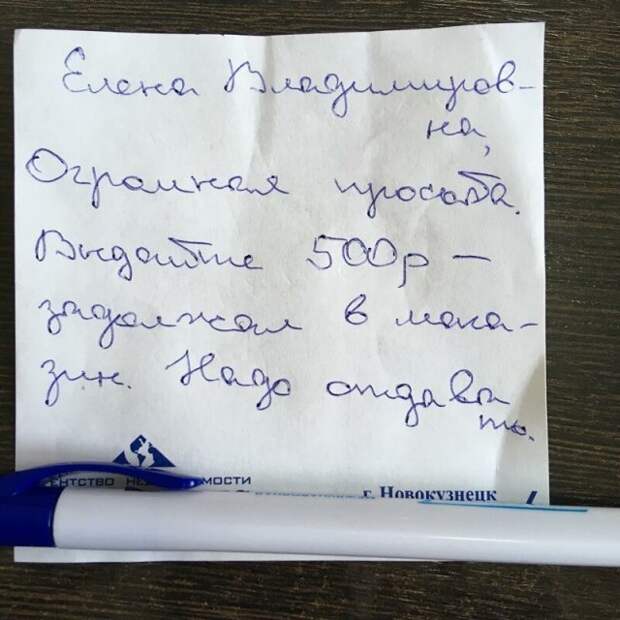 Елена Владимиров-
на,
Огромная просьба.
Выдайте 500р –
задолжал в мага-
зин. Надо отдава
ть.
г. Новокузнецк